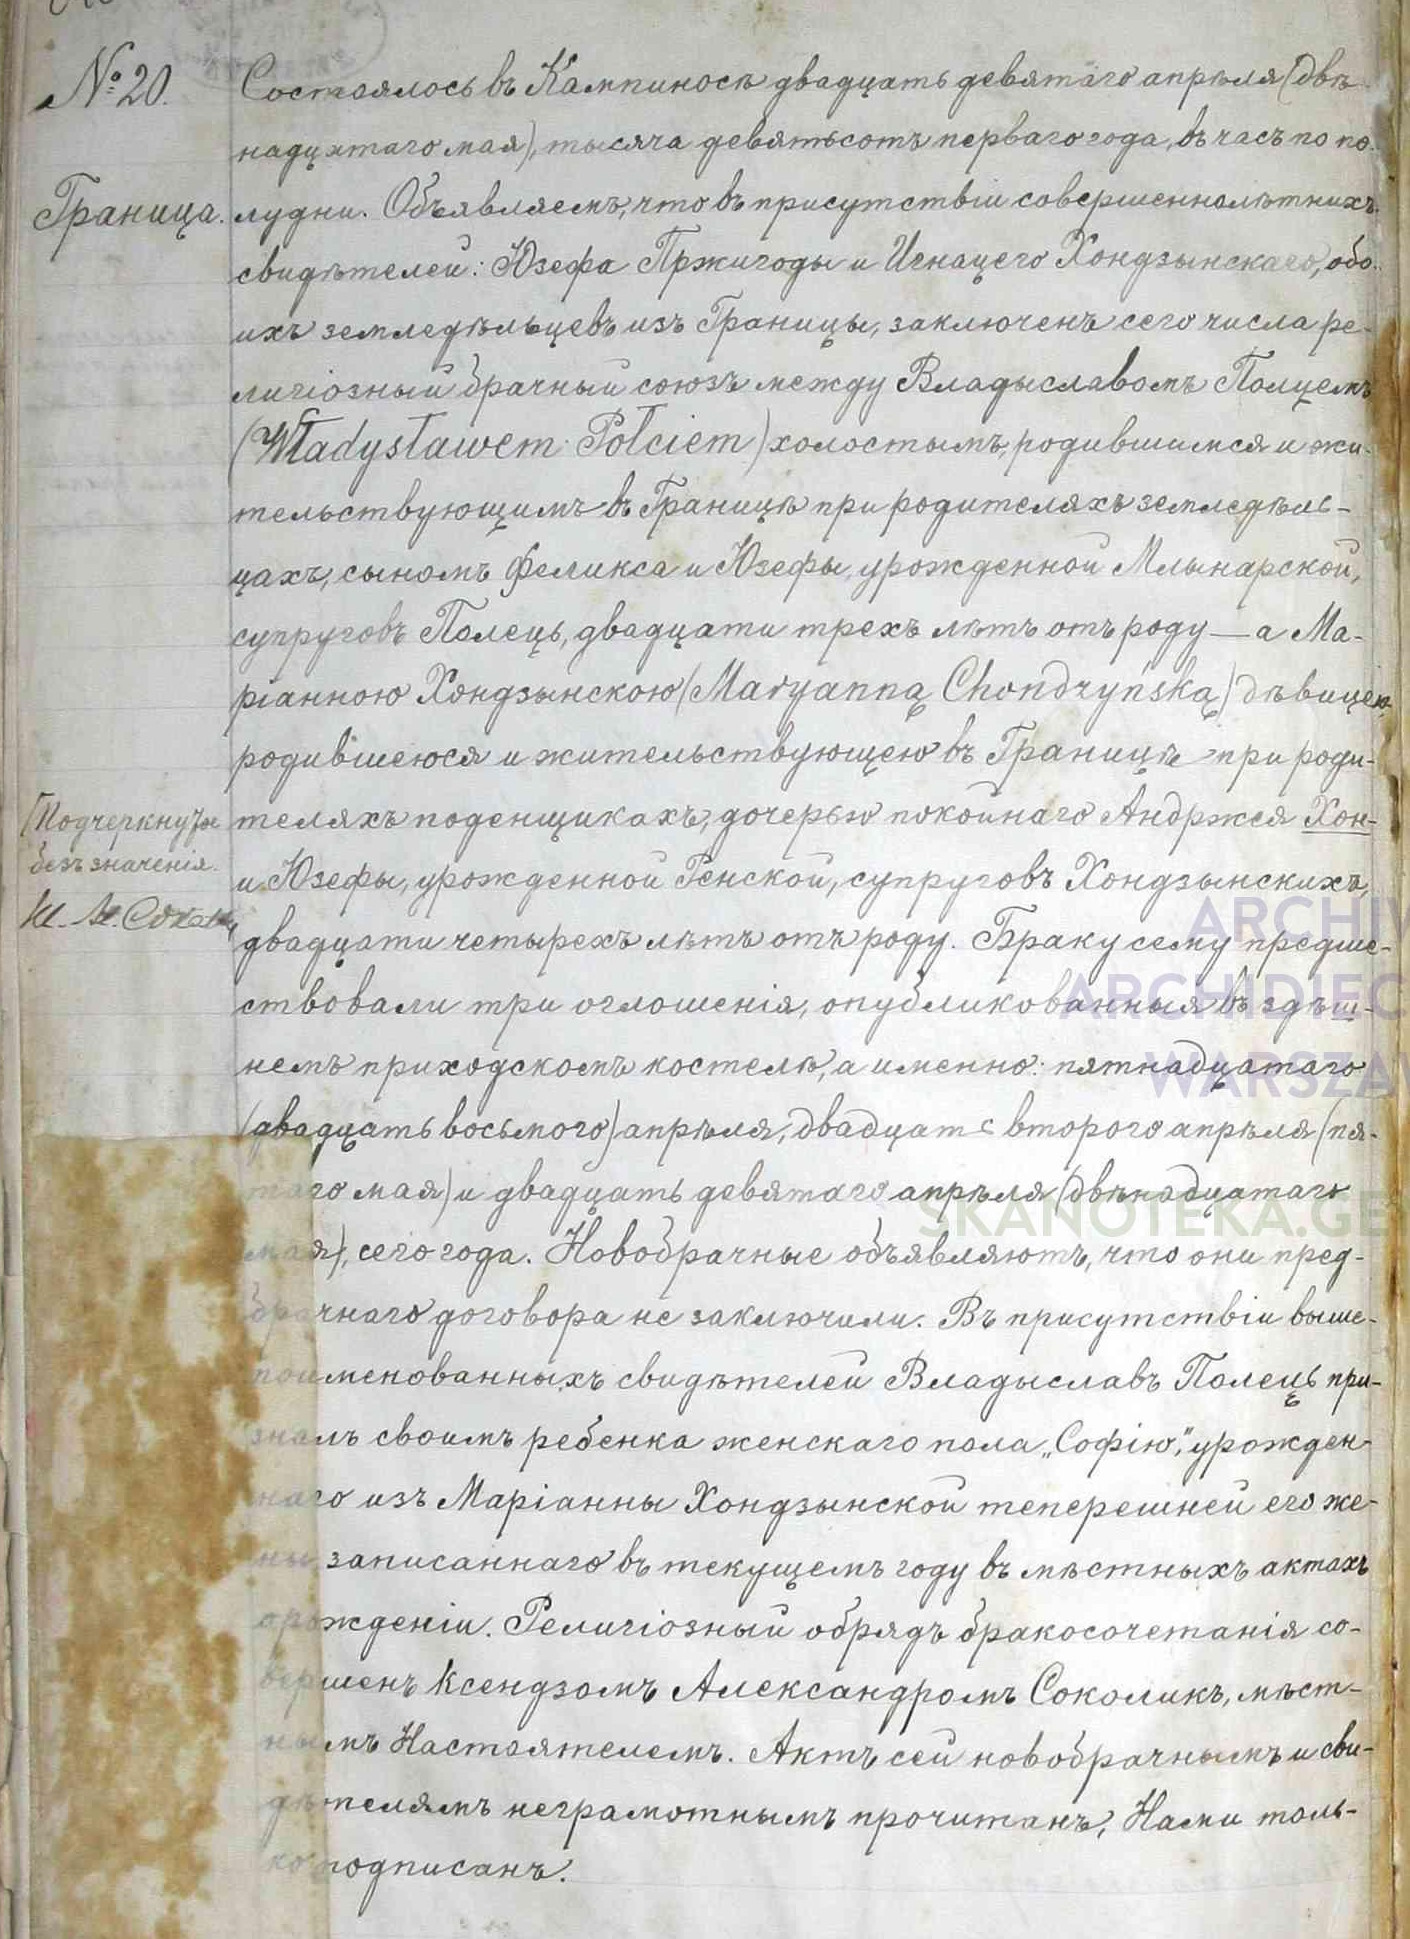 № 20.
Граница.
Состоялось въ Кампиносѣ двадцать девятаго апрѣля (двѣ-
надцатаго мая), тысяча девятьсотъ перваго года, въ часъ по по-
лудни. Объявляемъ, что въ присутствіи совершеннолѣтнихъ
свидѣтелей: Юзефа Пржигоды и Игнацего Хондзынскаго, обо-
ихъ земледѣльцевъ изъ Границы, заключенъ сего числа ре-
лигіозный брачный союзъ между Владыславомъ Полцемъ
(Władysławem Połciem) холостымъ, родившимся и жи-
тельствующимъ въ Границѣ при родителяхъ земледѣль-
цахъ, сыномъ Феликса и Юзефы, урожденной Млынарской,
супруговъ Полець, двадцати трехъ лѣтъ отъ роду — а Ма-
ріанною Хондзынскою (Maryanną Chondzyńską) дѣвицею
родившеюся и жительствующею въ Границѣ при роди-
теляхъ поденщикахъ, дочерью покойнаго Андржея Хон-
и Юзефы, урожденной Генской, супруговъ Хондзынскихъ,
двадцати четырехъ лѣтъ отъ роду. Браку сему предше-
ствовали три оглошенія, опубликованныя въ здѣш-
немъ приходскомъ костелѣ, а именно: пятнадцатаго
(двадцать восьмого) апрѣля, двадцать второго апрѣля (пя-
таго мая) и двадцать девятаго апрѣля (двѣнадцатаго
мая), сего года. Новобрачные объявляютъ, что они пред-
брачнаго договора не заключили. Въ присутствіи выше-
поименованныхъ свидѣтелей Владыславъ Полець при-
зналъ своимъ ребенка женскаго пола „Софію", урожден-
наго изъ Маріанны Хондзынской теперешней его же-
ны записаннаго въ текущемъ году въ мѣстныхъ актахъ
о рожденіи. Религіозный обрядъ бракосочетанія со-
вершенъ Ксендзомъ Александромъ Соколикъ, мѣст-
нымъ Настоятелемъ. Актъ сей новобрачнымъ и сви-
дѣтелямъ неграмотнымъ прочитанъ, Нами толь-
ко подписанъ.
Подчеркнутое
безъ значенія.
ARCHIW
ARCHIDIEC
WARSZA
SKANOTEKA.GE